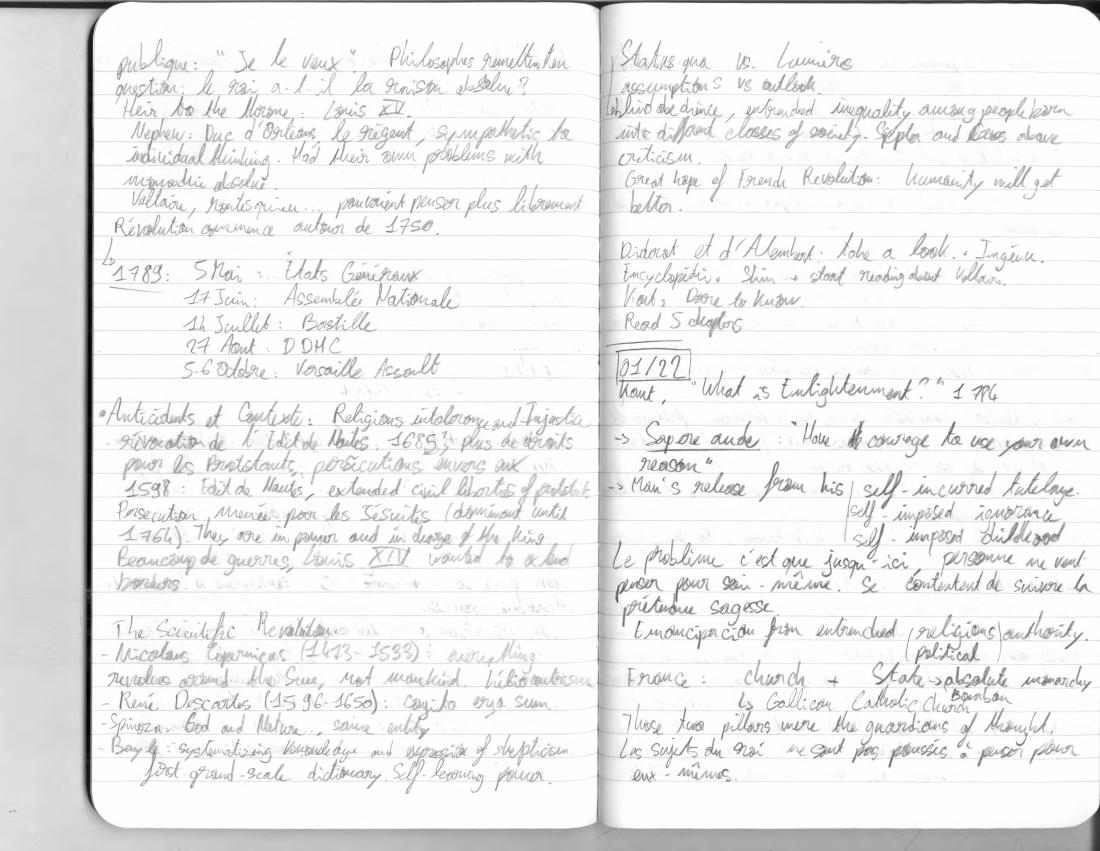 publique: "Je le veux" Philosophes remettent en
question: le roi a-t-il la raison absolue?
Heir to the throne: Louis XV.
Nephew: Duc d'Orléans, le régent, sympathetic to
individual thinking. Had their own problems with
monarchie absolue.
Voltaire, Montesquieu..., pouvaient penser plus librement
Révolution commence autour de 1750.
↳ 1789: 5 Mai: États Généraux
17 Juin: Assemblée Nationale
14 Juillet: Bastille
27 Aout: DDHC
5-6 Octobre: Versaille Assault
• Antécédents et Contexte: Religious intolerance and Injustice
- révocation de l'Edit de Nantes, 1685, plus de droits
pour les Protestants, persécutions envers eux
1598: Edit de Nantes, extended civil liberties of protestants
Persecution menée par les Jésuites (dominant until
1764). They are in power and in charge of the king.
Beaucoup de guerres, Louis XIV wanted to extend
borders.
The Scientific Revolution
- Nicolaus Copernicus (1473-1533): everything
revolves around the Sun, not mankind. héliocentrisme
- René Descartes (1596-1650): cogito ergo sum.
- Spinoza: God and Nature, same entity
- Bayle: systematizing knowledge and expression of skepticism.
first grand-scale dictionary. Self-learning power.
Status quo vs. Lumières
assumptions vs outlook
blind obedience, entrenched inequality among people born
into different classes of society. and above
criticism.
Great hope of French Revolution: humanity will get
better.
Diderot et d'Alembert: take a look.
Encyclopédie. Skim + start reading about Voltaire.
Kant, Dare to know.
Read 5 chapters
01/22
Kant, "What is Enlightenment?" 1784
→ Sapere aude: "Have courage to use your own
reason"
→ Man's release from his self-incurred tutelage.
self-imposed ignorance
self-imposed childhood
Le problème c'est que jusqu'ici, personne ne veut
penser pour soi-même. Se contentent de suivre la
prétendue sagesse.
Emancipation from entrenched (religious) authority.
political
France: church + State → absolute monarchy
Bourbon
↳ Gallican Catholic Church
Those two pillars were the guardians of thought.
Les sujets du roi ne sont pas poussés à penser pour
eux-mêmes.